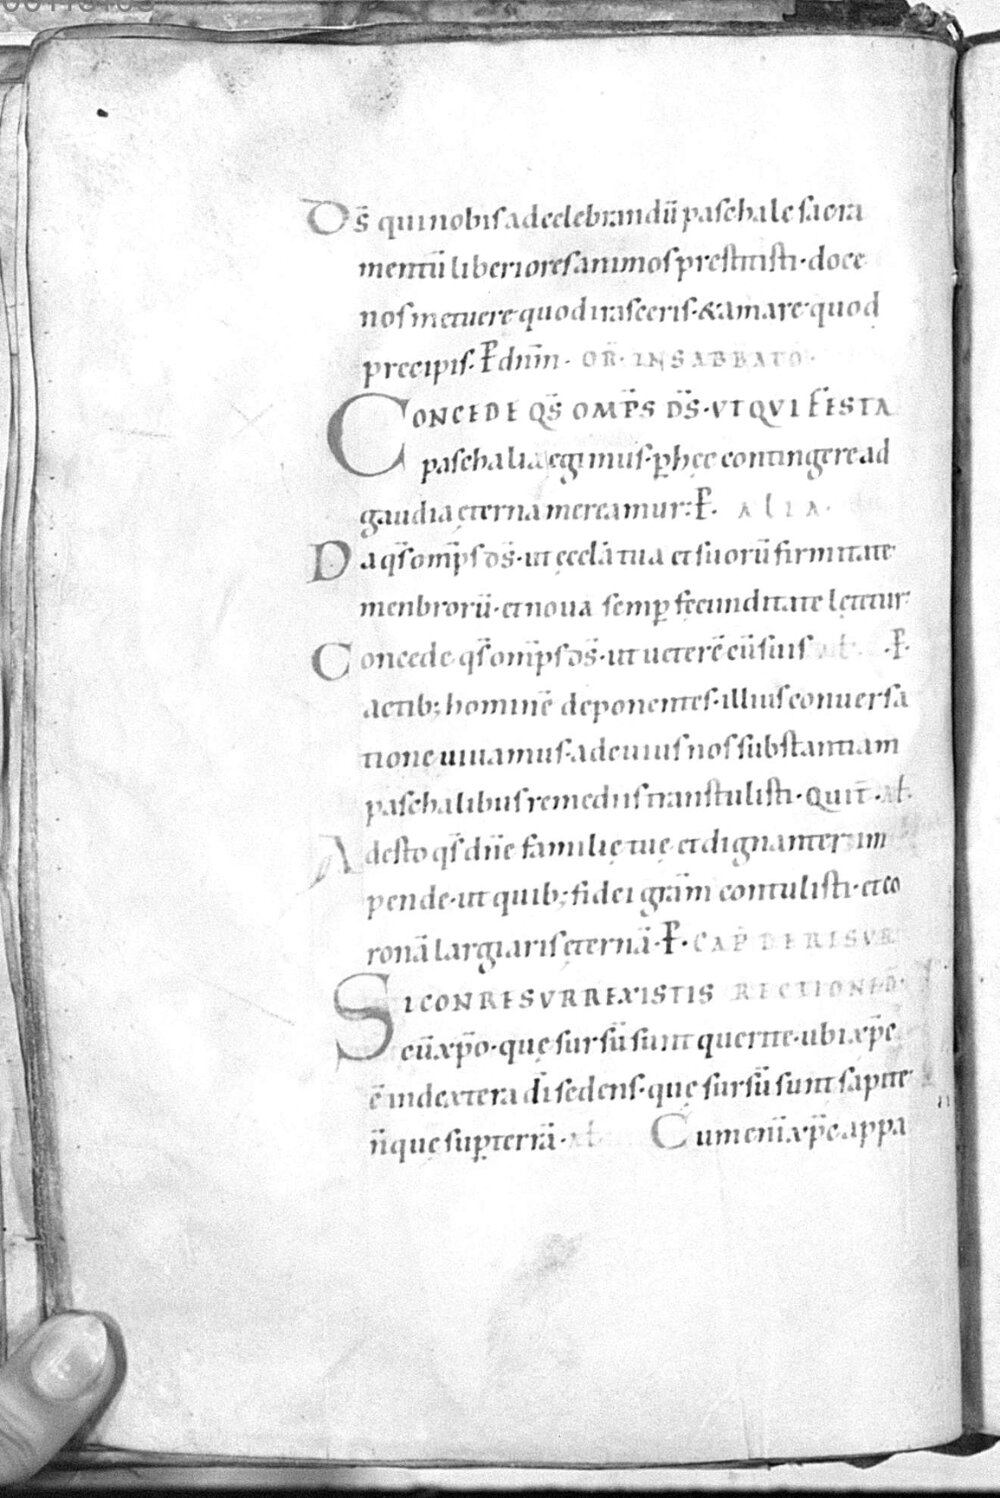 Ds̄ qui nobis ad celebrandū paschale sacra
mentū liberiores animos prestitisti · doce
nos metuere quod irasceris · & amare quod
precipis · P̄ dnm̄ · OR̄ · IN SABBATO ·
CONCEDE QS̄ OMP̄S DS̄ · VT QVI FESTA
paschalia egimus · p̱ hęc contingere ad
gaudia ęterna mereamur : P̄ · ALIA ·
Da qs̄ omp̄s ds̄ · ut ęccla̅ tua et suorū firmitate
menbrorū · et noua semp̱ fęcunditate lętetur ·
Concede qs̄ omp̄s ds̄ · ut ueterē cū suis at̄ · P̄ ·
actib; hominē deponentes · illius conuersa
tione uiuamus · ad cuius nos substantiam
paschalibus remediis transtulisti · Qui t̄ · at̄ ·
Adesto qs̄ dn̄e familię tuę et dignanter im
pende · ut quib; fidei gra̅m contulisti · et co
ronā largiaris ęternā · P̄ · CAP̄ DE RISVR
SI CONRESVRREXISTIS RECTIONE DN̄ ·
cū xp̄o · quę sursū sunt querite · ubi xp̄c
ē in dextera dī sedens · quę sursū sunt sapite
n̄ quę sup̱ terrā · at̄ Cum eni̅ xp̄c appa